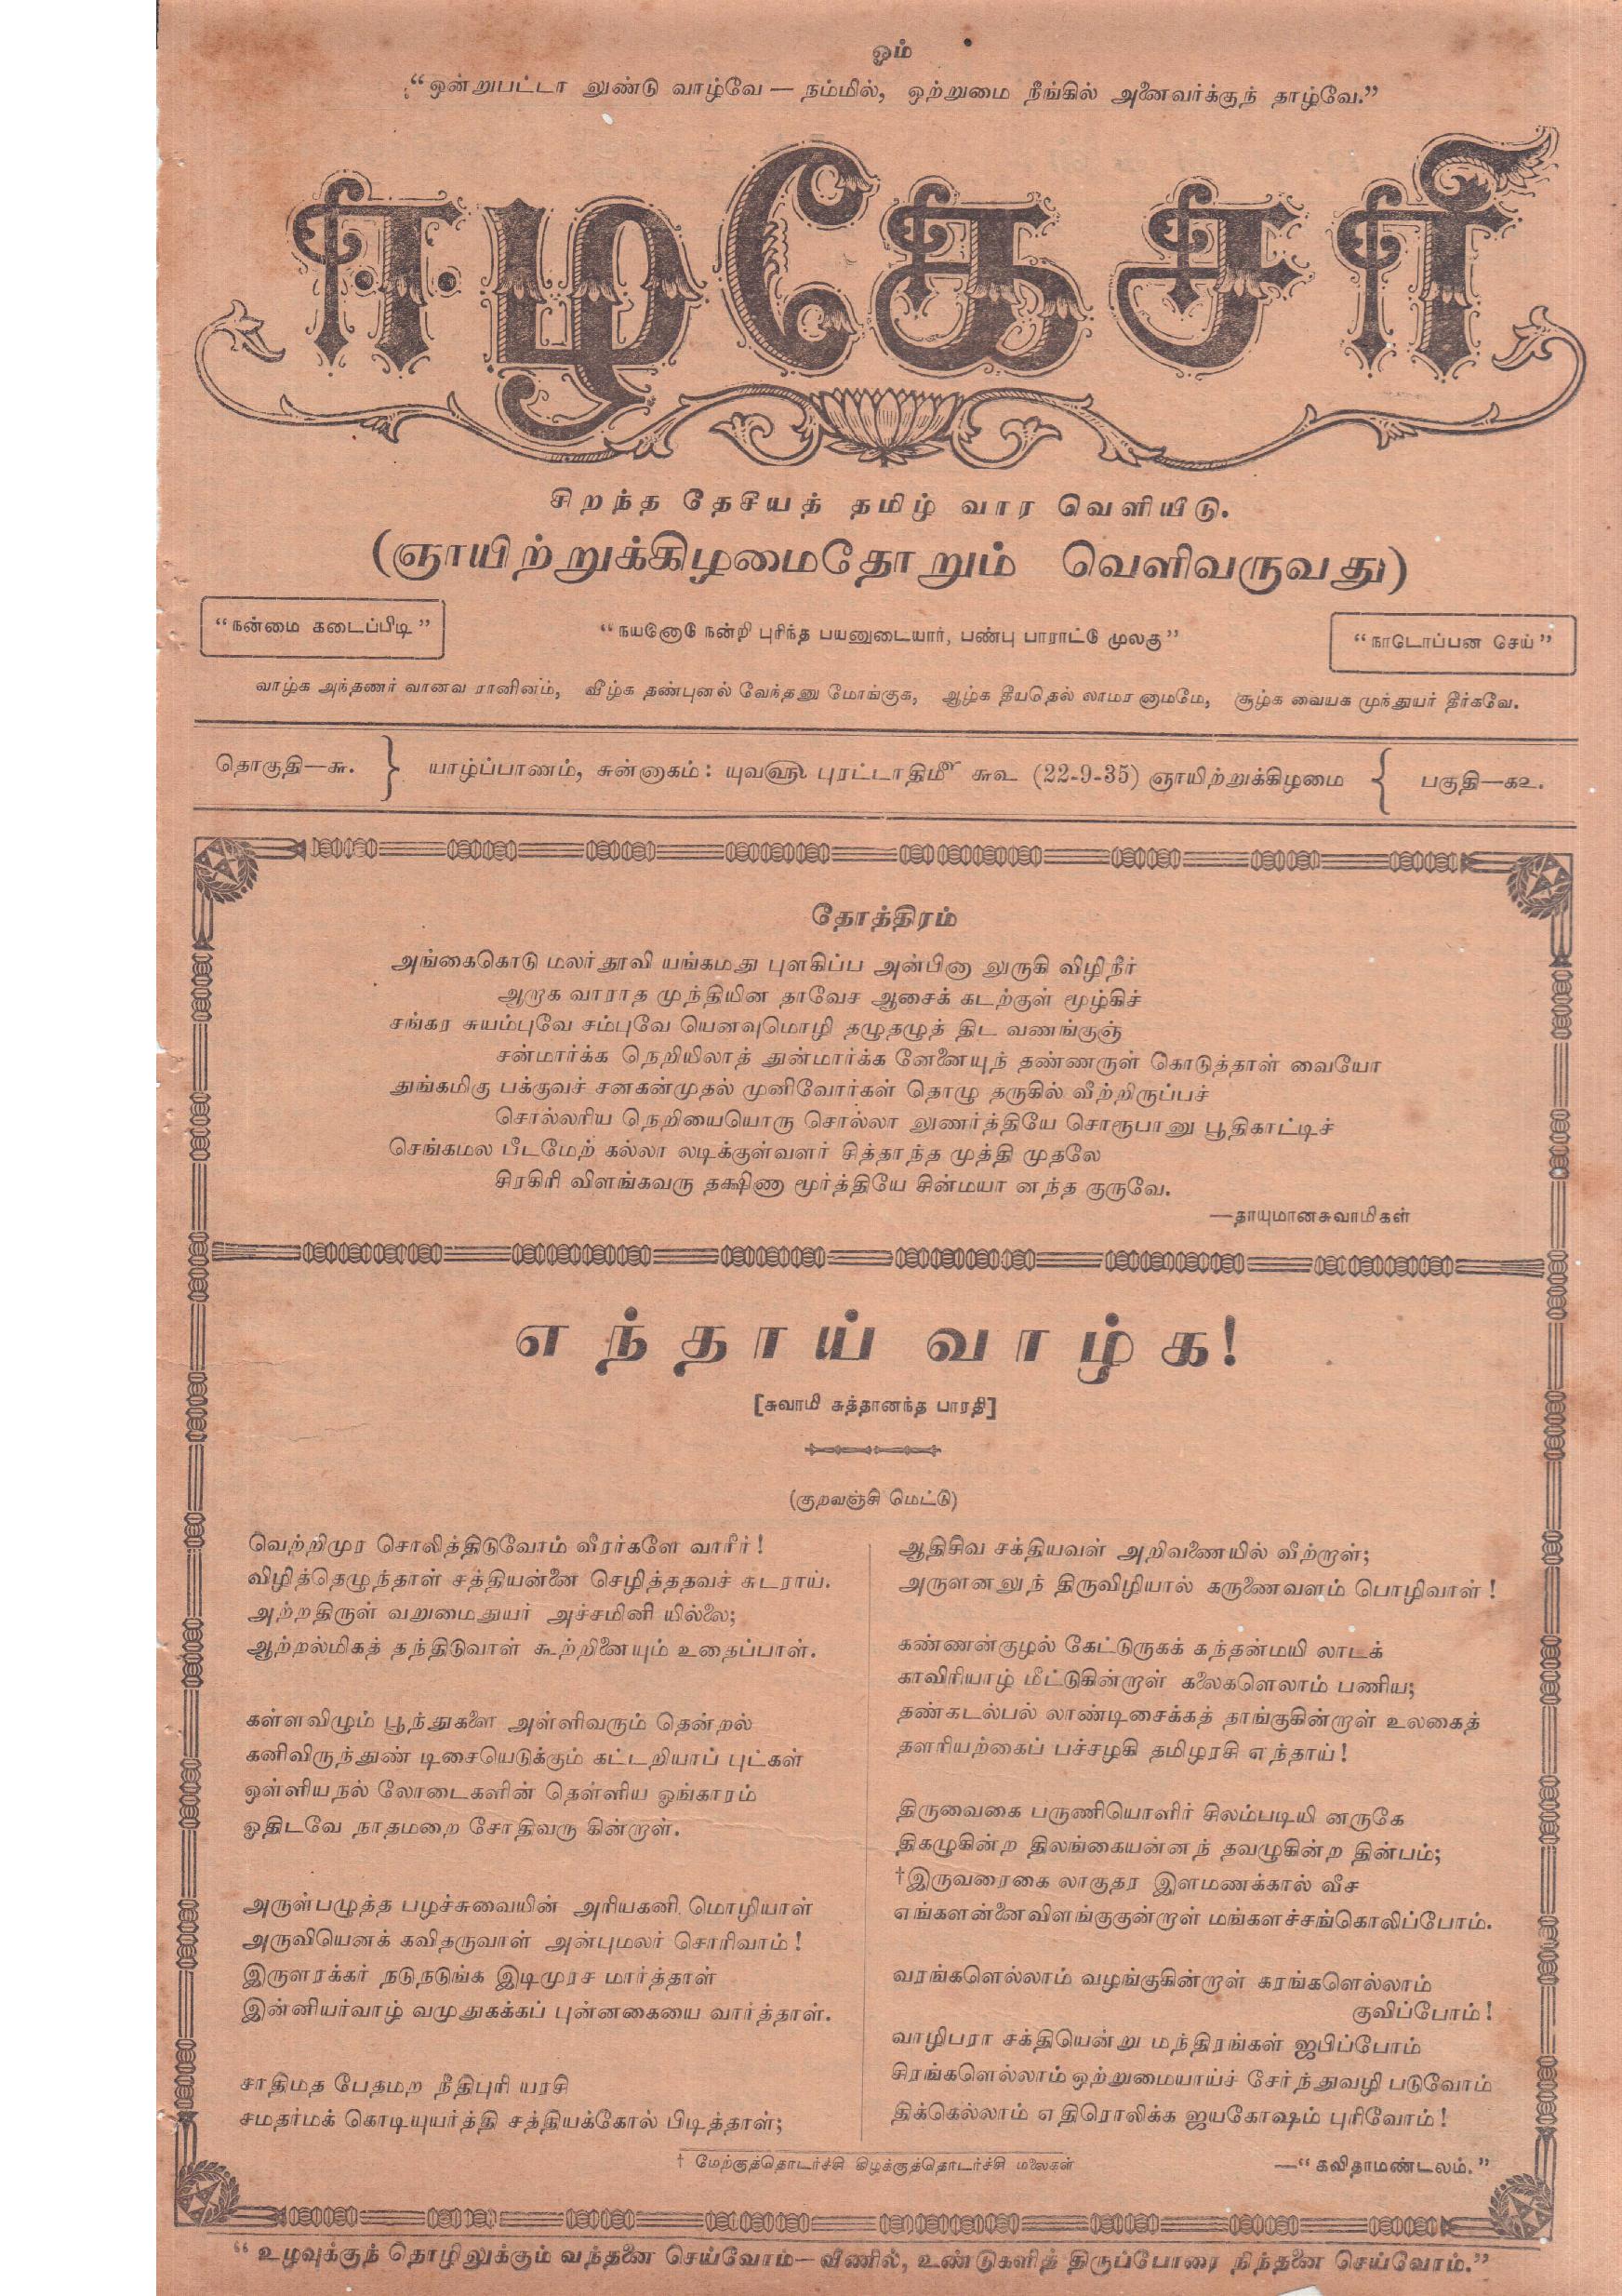 ஓம்
“ஒன்றுபட்டா லுண்டு வாழ்வே — நம்மில், ஒற்றுமை நீங்கில் அனைவர்க்குந் தாழ்வே.”
ஈழகேசரி
சிறந்த தேசீயத் தமிழ் வார வெளியீடு.
(ஞாயிற்றுக்கிழமைதோறும் வெளிவருவது)
“நன்மை கடைப்பிடி”
“நயனோடு நன்றி புரிந்த பயனுடையார், பண்பு பாராட்டு முலகு”
“நாடொப்பன செய்”
வாழ்க அந்தணர் வானவ ரானினம், வீழ்க தண்புனல் வேந்தனு மோங்குக, ஆழ்க தீயதெல் லாமர னாமமே, சூழ்க வையக முந்துயர் தீர்கவே.
தொகுதி—௬. } யாழ்ப்பாணம், சுன்னாகம்: யுவ௵ புரட்டாதி௴ ௬௨ (22-9-35) ஞாயிற்றுக்கிழமை { பகுதி—௧௨.
தோத்திரம்
அங்கைகொடு மலர்தூவி யங்கமது புளகிப்ப அன்பினா லுருகி விழிநீர்
ஆறாக வாராத முந்தியின தாவேச ஆசைக் கடற்குள் மூழ்கிச்
சங்கர சுயம்புவே சம்புவே யெனவுமொழி தழுதழுத் திட வணங்குஞ்
சன்மார்க்க நெறியிலாத் துன்மார்க்க னேனையுந் தண்ணருள் கொடுத்தாள் வையோ
துங்கமிகு பக்குவச் சனகன்முதல் முனிவோர்கள் தொழு தருகில் வீற்றிருப்பச்
சொல்லரிய நெறியையொரு சொல்லா லுணர்த்தியே சொரூபானு பூதிகாட்டிச்
செங்கமல பீடமேற் கல்லா லடிக்குள்வளர் சித்தாந்த முத்தி முதலே
சிரகிரி விளங்கவரு தக்ஷிணா மூர்த்தியே சின்மயா னந்த குருவே.
—தாயுமானசுவாமிகள்
எந்தாய் வாழ்க!
[சுவாமி சுத்தானந்த பாரதி]
(குறவஞ்சி மெட்டு)
வெற்றிமுர சொலித்திடுவோம் வீரர்களே வாரீர்!
விழித்தெழுந்தாள் சத்தியன்னை செழித்ததவச் சுடராய்.
அற்றதிருள் வறுமைதுயர் அச்சமினி யில்லை;
ஆற்றல்மிகத் தந்திடுவாள் கூற்றினையும் உதைப்பாள்.
கள்ளவிழும் பூந்துகளை அள்ளிவரும் தென்றல்
கனிவிருந்துண் டிசையெடுக்கும் கட்டறியாப் புட்கள்
ஒள்ளியநல் லோடைகளின் தெள்ளிய ஓங்காரம்
ஓதிடவே நாதமறை சோதிவரு கின்றாள்.
அருள்பழுத்த பழச்சுவையின் அரியகனி மொழியாள்
அருவியெனக் கவிதருவாள் அன்புமலர் சொரிவாம்!
இருளரக்கர் நடுநடுங்க இடிமுரச மார்த்தாள்
இன்னியர்வாழ் வமுதுகக்கப் புன்னகையை வார்த்தாள்.
சாதிமத பேதமற நீதிபுரி யரசி
சமதர்மக் கொடியுயர்த்தி சத்தியக்கோல் பிடித்தாள்;
ஆதிசிவ சக்தியவள் அறிவணையில் வீற்றாள்;
அருளனலுந் திருவிழியால் கருணைவளம் பொழிவாள்!
கண்ணன்குழல் கேட்டுருகக் கந்தன்மயி லாடக்
காவிரியாழ் மீட்டுகின்றாள் கலைகளெலாம் பணிய;
தண்கடல்பல் லாண்டிசைக்கத் தாங்குகின்றாள் உலகைத்
தளரியற்கைப் பச்சழகி தமிழரசி எந்தாய்!
திருவைகை பருணியொளிர் சிலம்படியி னருகே
திகழுகின்ற திலங்கையன்னந் தவழுகின்ற தின்பம்;
†இருவரைகை லாகுதர இளமணக்கால் வீச
எங்களன்னைவிளங்குகுன்றாள் மங்களச்சங்கொலிப்போம்.
வரங்களெல்லாம் வழங்குகின்றாள் கரங்களெல்லாம்
குவிப்போம்!
வாழிபரா சக்தியென்று மந்திரங்கள் ஜபிப்போம்
சிரங்களெல்லாம் ஒற்றுமையாய்ச் சேர்ந்துவழி படுவோம்
திக்கெல்லாம் எதிரொலிக்க ஜயகோஷம் புரிவோம்!
† மேற்குத்தொடர்ச்சி கிழக்குத்தொடர்ச்சி மலைகள்
—“கவிதாமண்டலம்.”
“உழவுக்குந் தொழிலுக்கும் வந்தனை செய்வோம்— வீணில், உண்டுகளித் திருப்போரை நிந்தனை செய்வோம்.”